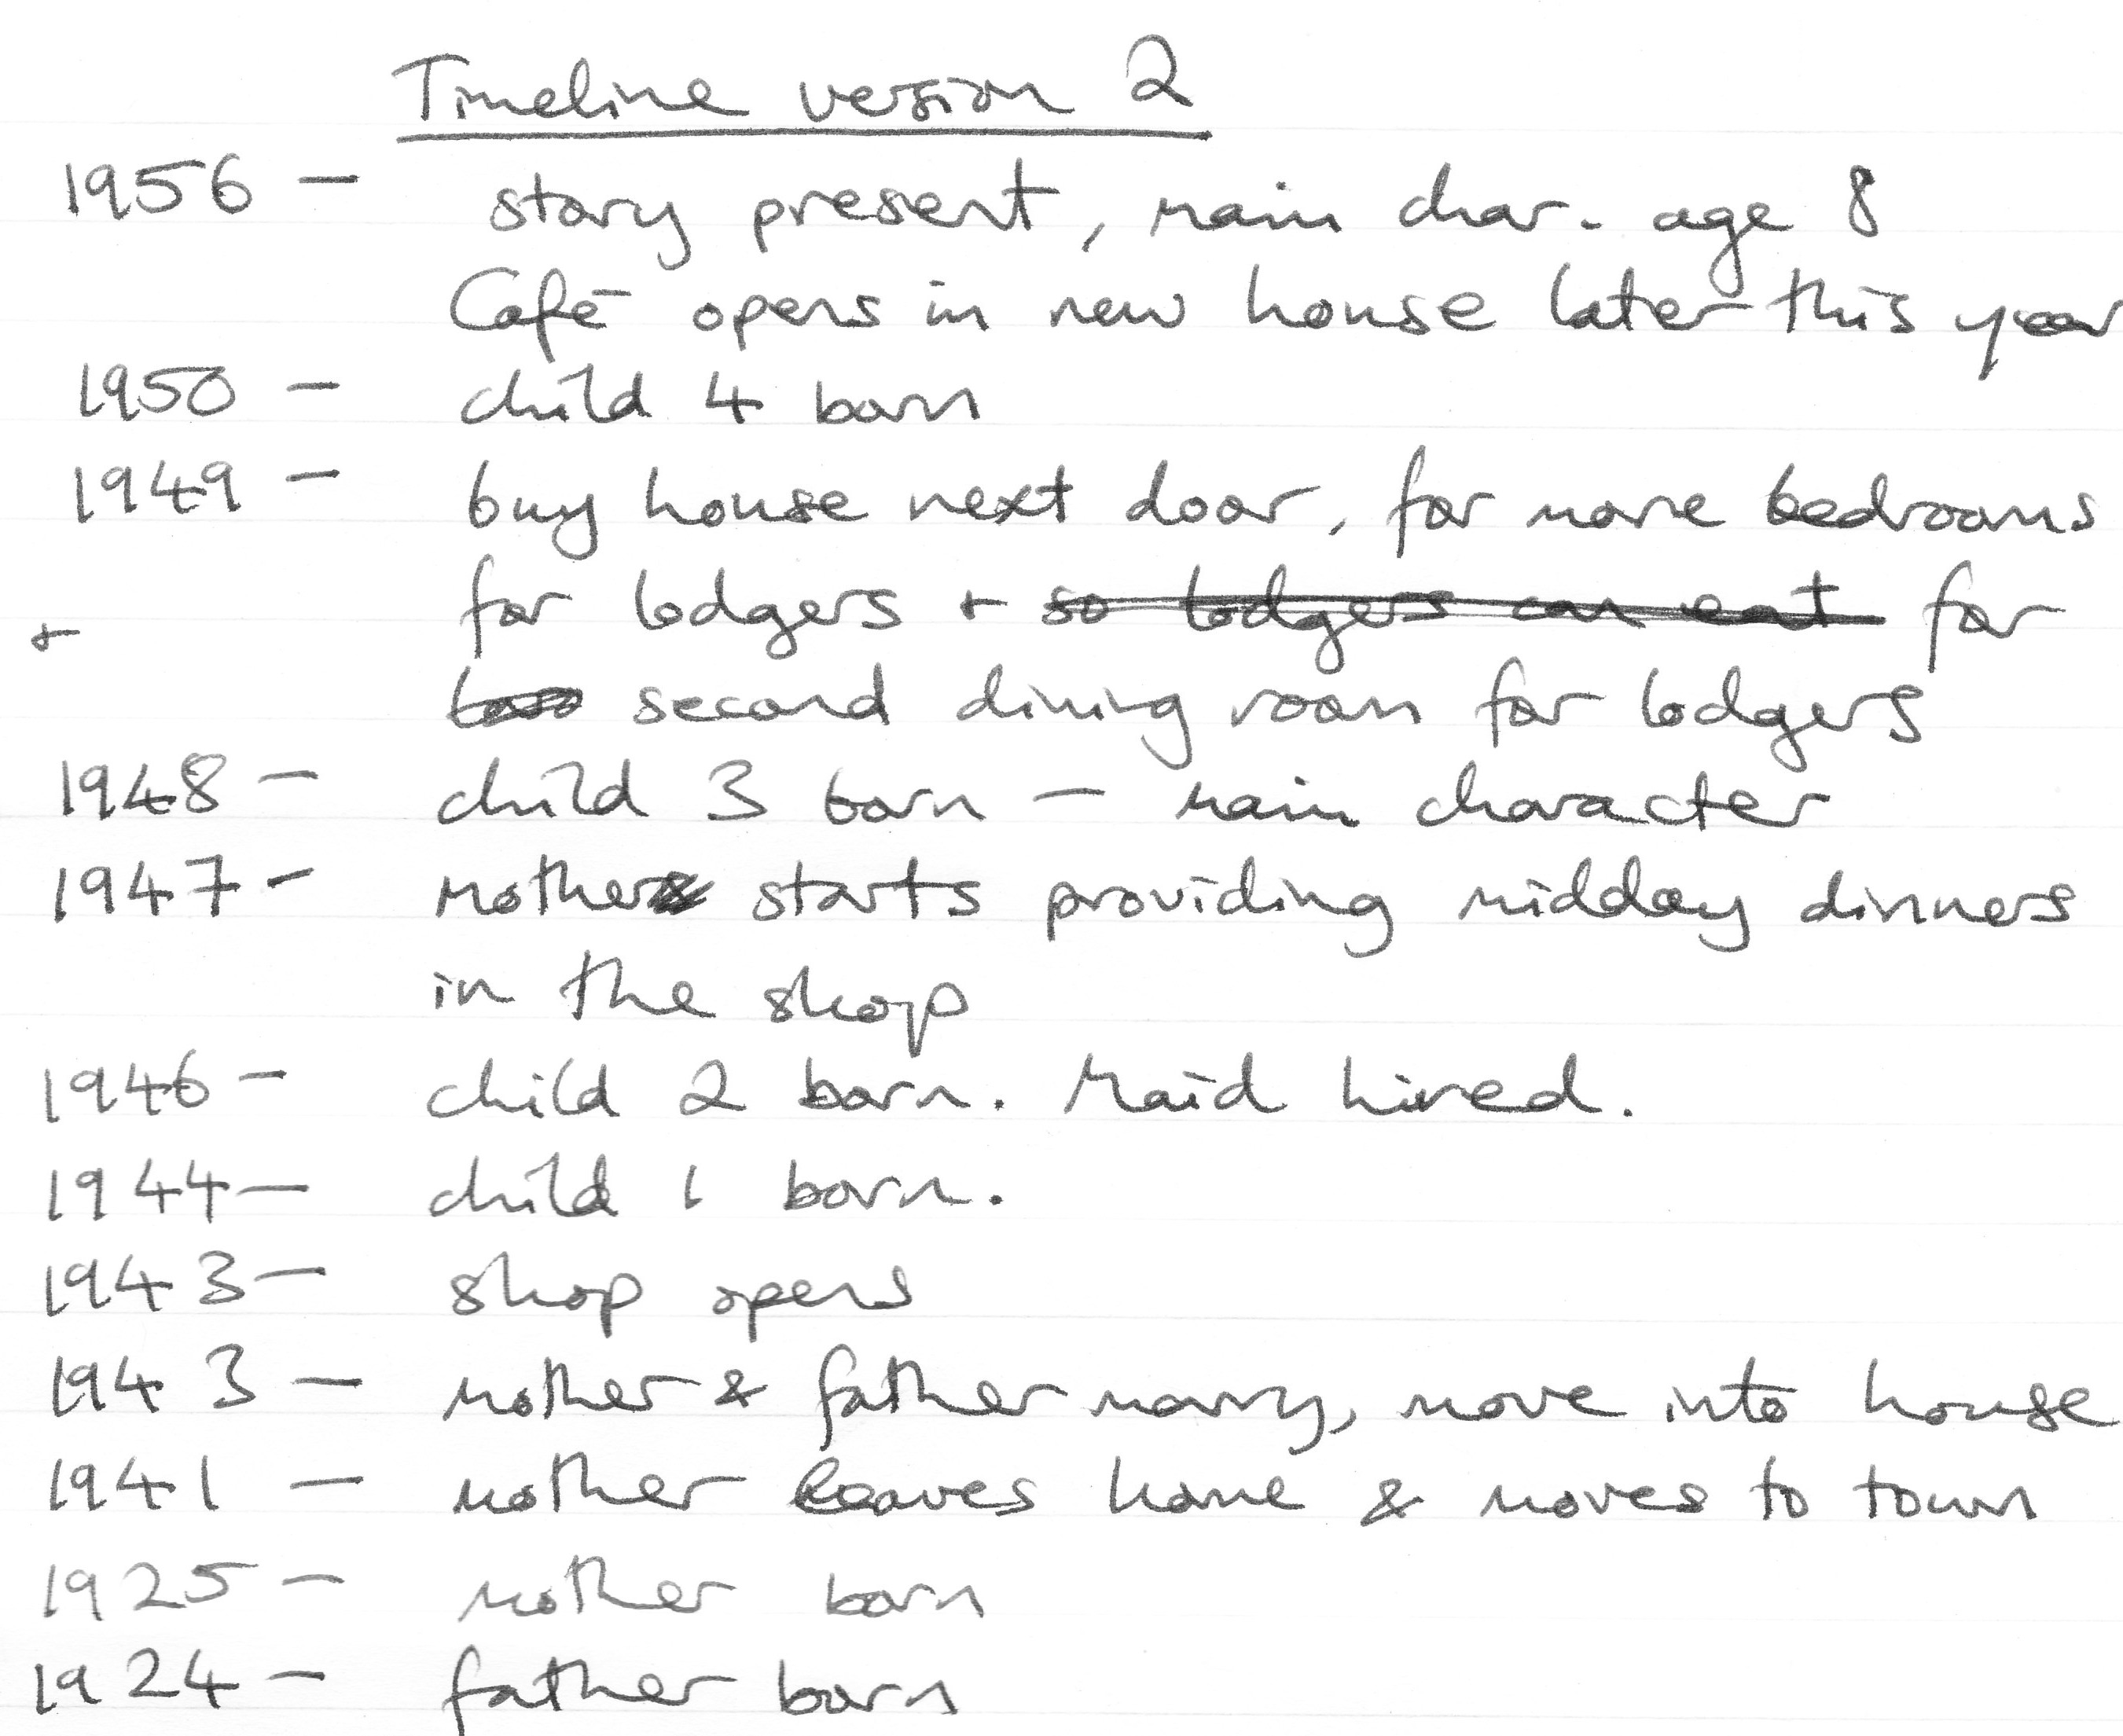 Timeline version 2
1956 - story present, main char. age 8
Café opens in new house later this year
1950 - child 4 born
1949 - buy house next door, for more bedrooms
for lodgers + so lodgers can eat for
+
second dining room for lodgers
1948 - child 3 born - main character
1947 - mother starts providing midday dinners
in the shop
1946 - child 2 born. Maid hired.
1944 - child 1 born.
1943 - shop opens
1943 - mother & father marry, move into house
1941 - mother leaves home & moves to town
1925 - mother born
1924 - father born